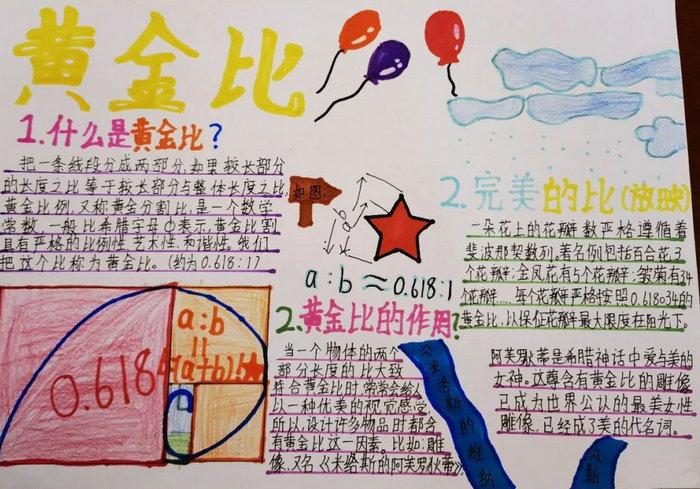 黄金比
1.什么是黄金比?
把一条线段分成两部分,如果较长部分
的长度之比等于较长部分与整体长度之比,
黄金比例,又称黄金分割比,是一个数学
常数,一般比希腊字母中表示,黄金比割
具有严格的比例性,艺术性,和谐性,我们
把这个比称为黄金比。(约为0.618:1)
如图:
a
b
a:b≈0.618:1
0.618
a:b
=
(a+b):b
2.黄金比的作用?
当一个物体的两个
部分长度的比大致
符合黄金比时,常常会给人
以一种优美的视觉感受,
所以,设计许多物品时都含
有黄金比这一因素。比如:雕
像,又名《米洛斯的阿芙罗狄蒂》
《米洛斯的维纳
斯
2.完美的比(放映)
一朵花上的花瓣数严格遵循着
斐波那契数列。著名例包括百合花3
个花瓣;金凤花有5个花瓣;雏菊有34
个花瓣……每个花瓣严格按照0.618034的
黄金比,以保征花瓣最大限度在阳光下。
阿芙罗狄蒂是希腊神话中爱与美的
女神。这尊含有黄金比的雕像
已成为世界公认的最美女性
雕像,已经成了美的代名词。